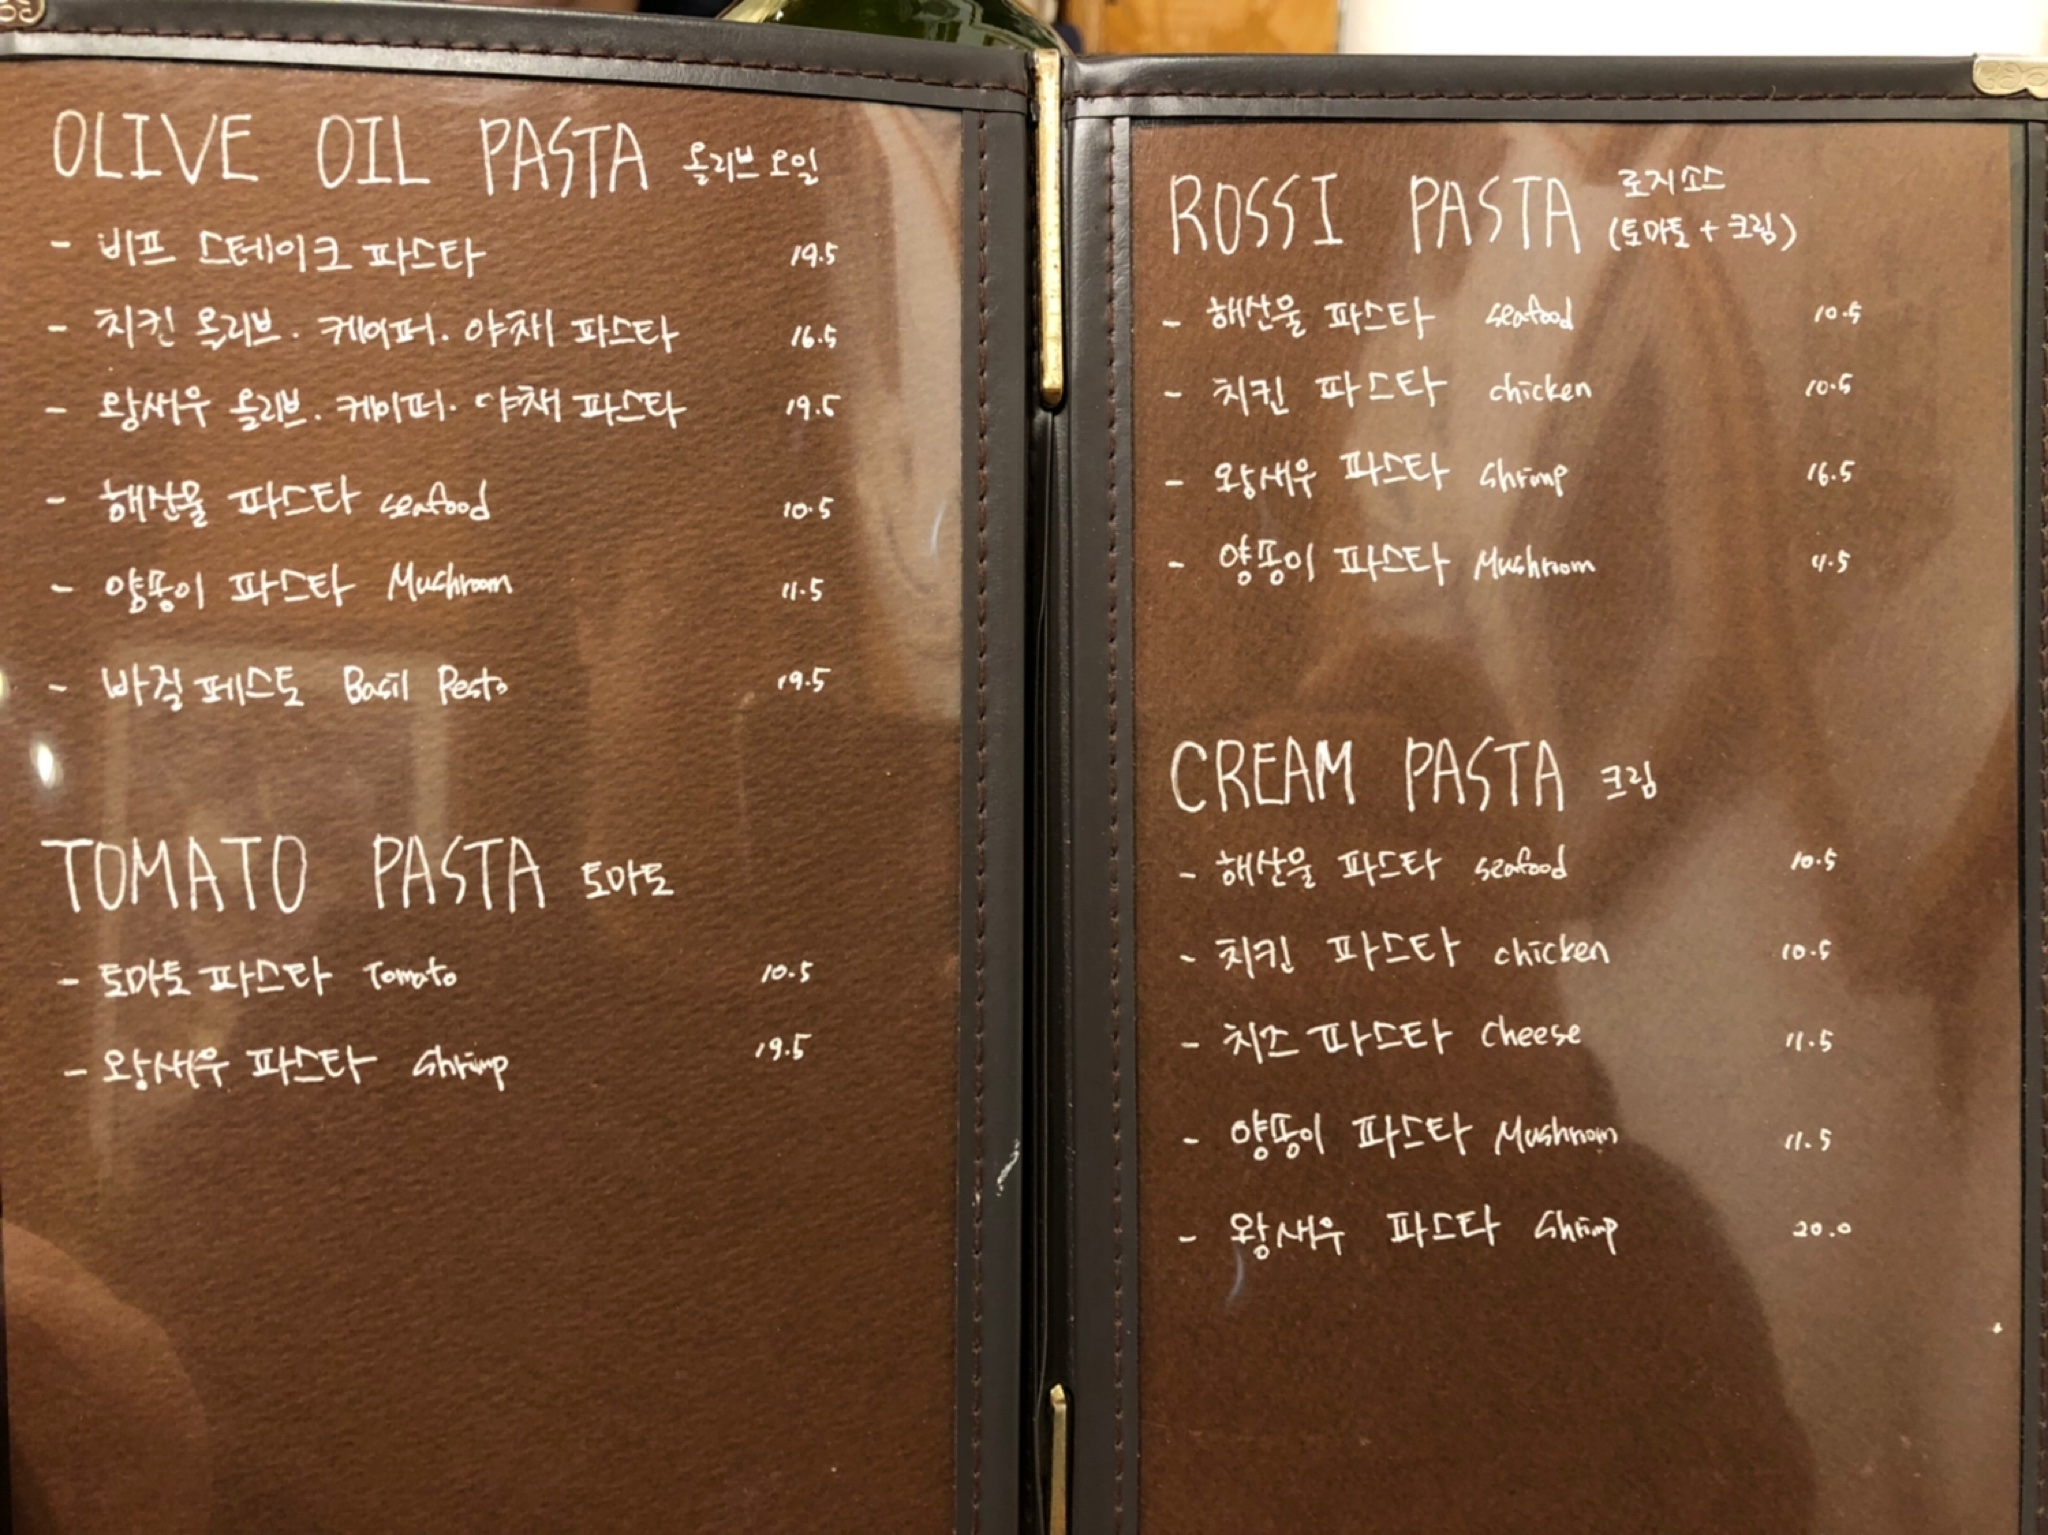 OLIVE OIL PASTA 올리브 오일
- 비프 스테이크 파스타 19.5
- 치킨 올리브. 케이퍼. 야채 파스타 16.5
- 왕새우 올리브. 케이퍼. 야채 파스타 19.5
- 해산물 파스타 seafood 10.5
- 양송이 파스타 Mushroom 11.5
- 바질페스토 Basil Pesto 19.5
TOMATO PASTA 토마토
- 토마토 파스타 Tomato 10.5
- 왕새우 파스타 shrimp 19.5
ROSSI PASTA 로지소스
(토마토 + 크림)
- 해산물 파스타 seafood 10.5
- 치킨 파스타 chicken 10.5
- 왕새우 파스타 shrimp 16.5
- 양송이 파스타 Mushroom 11.5
CREAM PASTA 크림
- 해산물 파스타 seafood 10.5
- 치킨 파스타 chicken 10.5
- 치즈 파스타 cheese 11.5
- 양송이 파스타 Mushroom 11.5
- 왕새우 파스타 shrimp 20.0